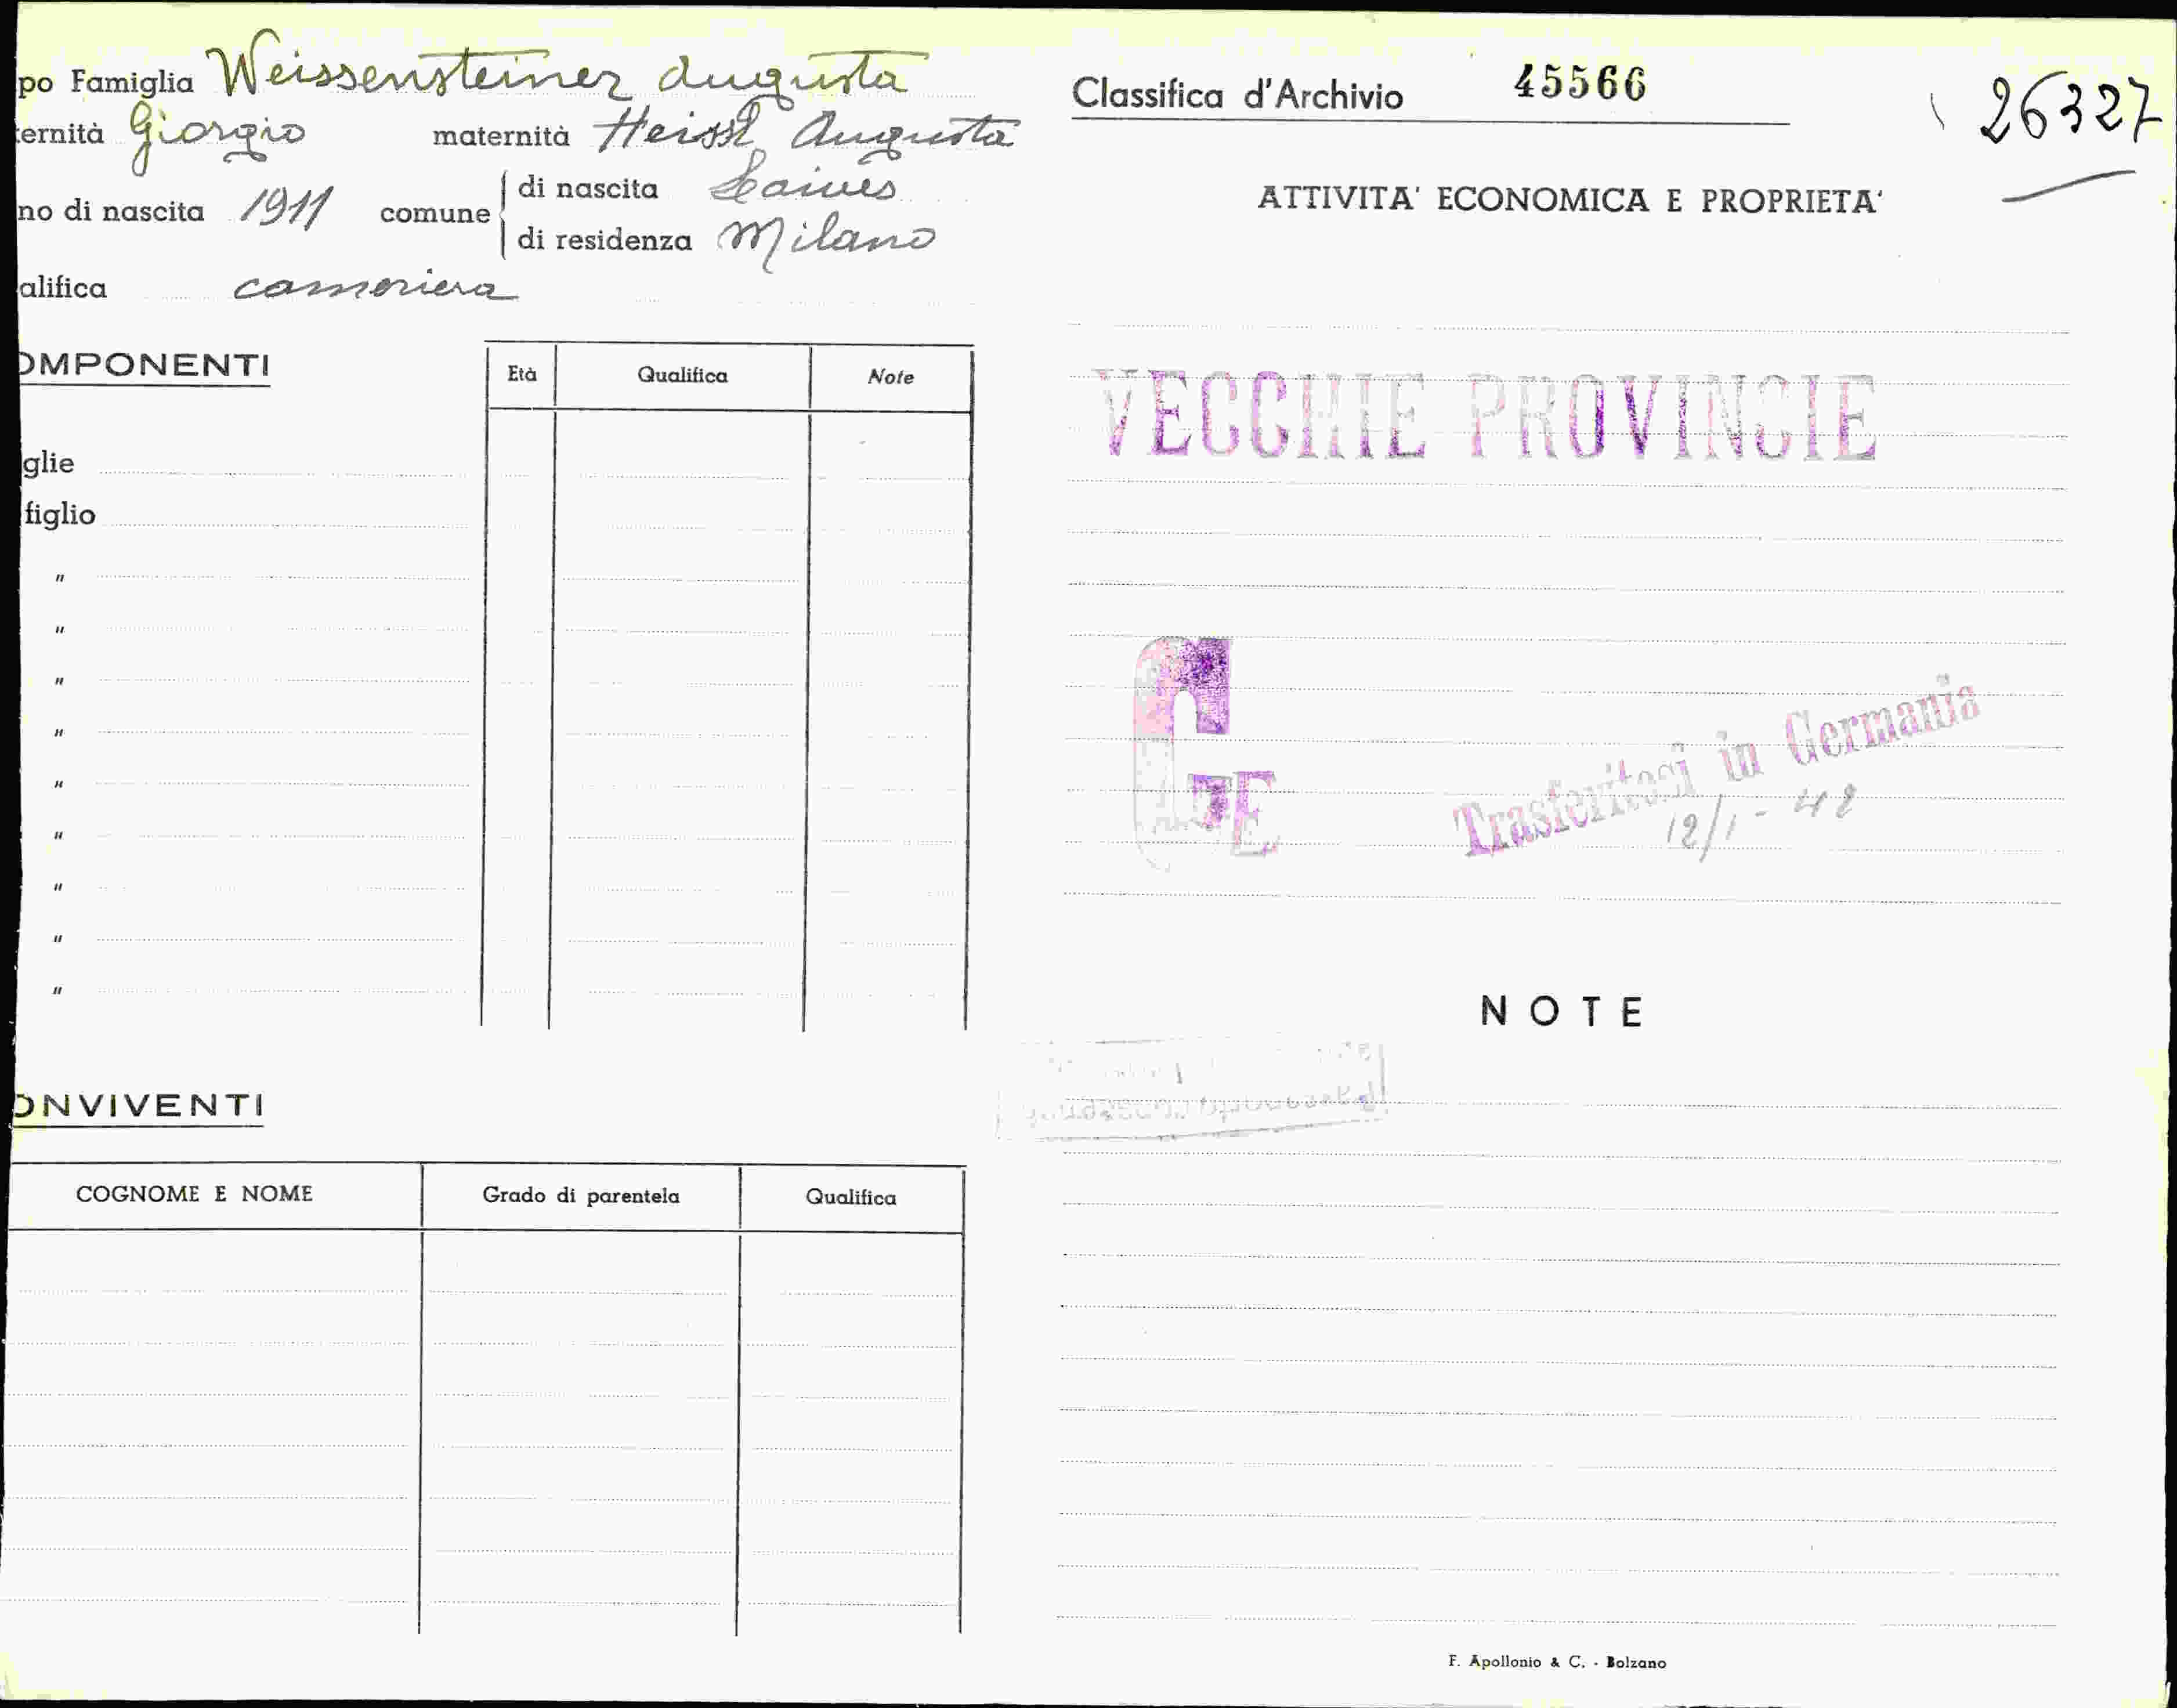 po Famiglia Weissensteiner Augusta
ternità Giorgio maternità Heissl Augusta
no di nascita 1911 comune di nascita Laives
di residenza Milano
alifica cameriera
OMPONENTI
Età Qualifica Note
glie
figlio
"
"
"
"
"
"
"
"
"
ONVIVENTI
COGNOME E NOME Grado di parentela Qualifica
Classifica d'Archivio 45566
26327
ATTIVITA' ECONOMICA E PROPRIETA'
VECCHIE PROVINCIE
Trasferitosi in Germania
12/1-42
NOTE
F. Apollonio & C. - Bolzano